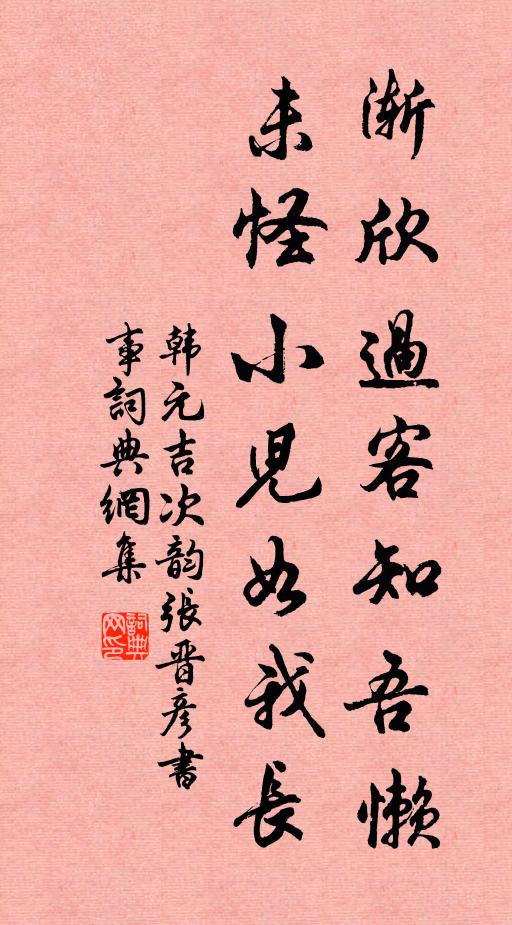 漸欣過客知吾懶
未怪小兒如我長
韩元吉次韵張晋彦書
事詞典網集
詞典网印